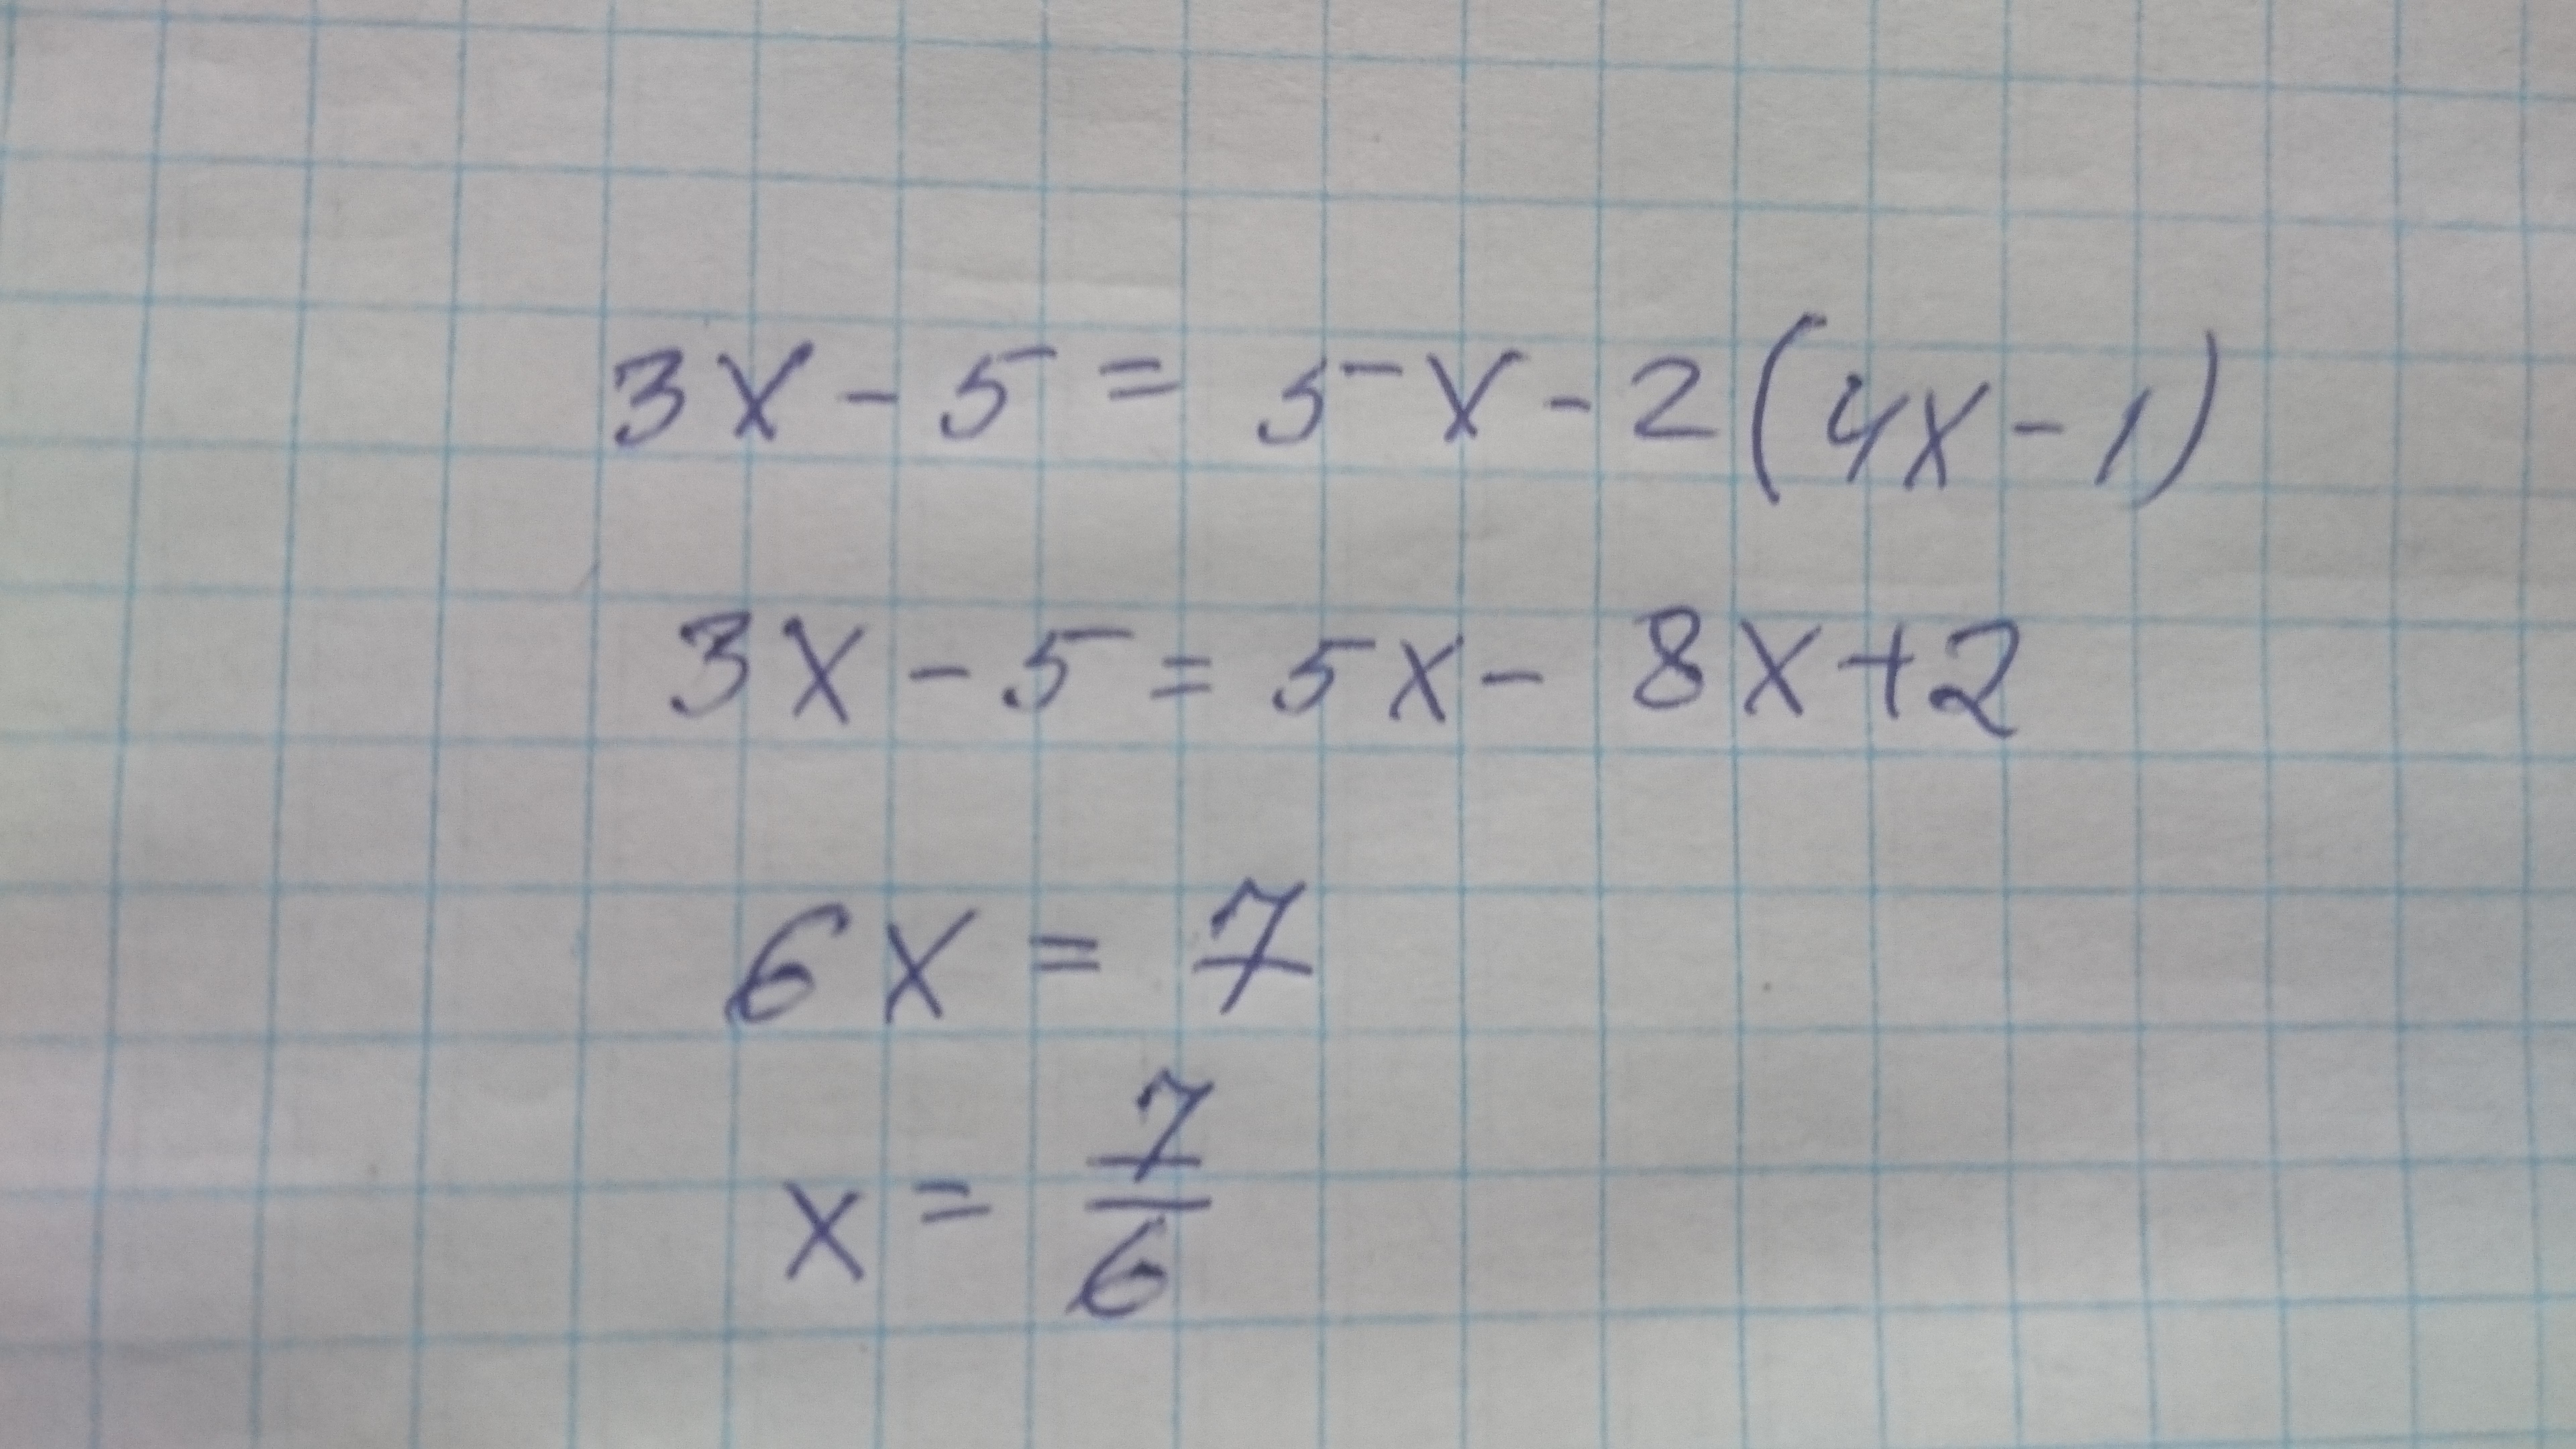 3x - 5 = 5x - 2(4x - 1)
3x - 5 = 5x - 8x + 2
6x = 7
x = 7/6